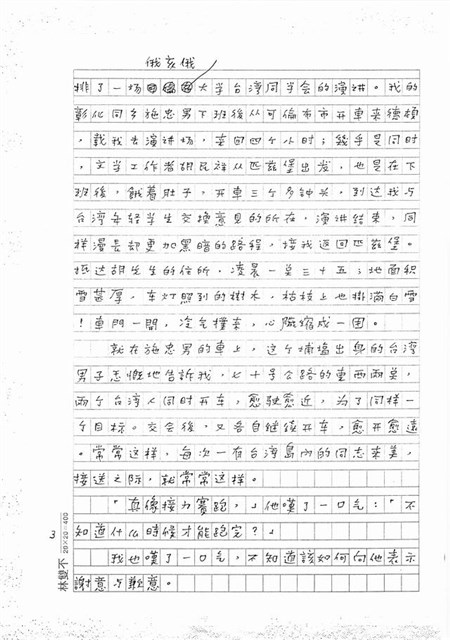 俄亥俄
排了一场大学台湾同学会的演讲。我的
彰化同乡施忠男下班後从可倫布市开車来德頓
，載我去演讲场，来回四个小时；幾乎是同时
，文学工作者胡民祥从匹兹堡出发，也是在下
班後，餓着肚子，开車三个多钟头，到达我与
台湾年轻学生交換意見的所在，演讲结束，同
样漫長却更加黑暗的路程，接我返回匹兹堡。
抵达胡先生的住所，凌晨一点三十五；地面积
雪甚厚，车灯照到的樹木，枯枝上也掛滿白雪
！車門一開，冷气撲来，心臟缩成一团。
就在施忠男的車上，这个埔塩出身的台湾
男子感慨地告訴我，七十号公路的東西兩美，
兩个台湾人同时开车，愈駛愈近，为了同样一
个目标。交会後，又各自继续开车，愈开愈遠
。常常这样，每次一有台湾島內的同志来美，
接送之际，就常常这样。
「真像接力賽跑，」他嘆了一口气：「不
知道什么時候才能跑完？」
我也嘆了一口气，不知道該如何向他表示
謝意与歉意。
3
林雙不 20×20=400